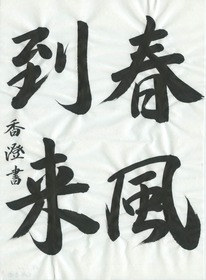 春風
到来
香澄書